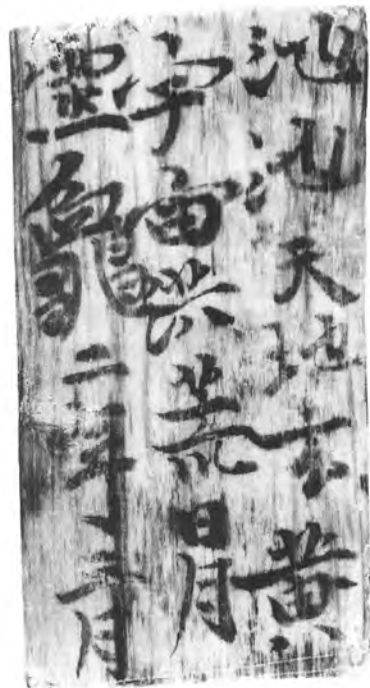 池池天地玄黄
宇宙洪荒日月
霊亀二年三月